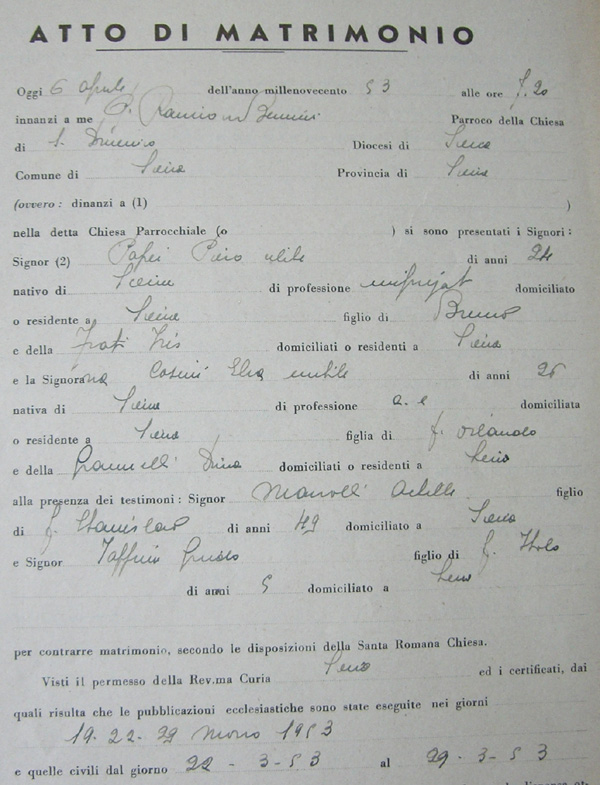 ATTO DI MATRIMONIO
Oggi 6 aprile dell'anno millenovecento 53 alle ore 7.20
innanzi a me P. Parroco della Chiesa
di S. Domenico Diocesi di Siena
Comune di Siena Provincia di Siena
(ovvero: dinanzi a (1) )
nella detta Chiesa Parrocchiale (o ) si sono presentati i Signori:
Signor (2) Papei Piero celibe di anni 24
nativo di Siena di professione impiegat domiciliato
o residente a Siena figlio di Bruno
e della Frati Iris domiciliati o residenti a Siena
e la Signorana Cosini Elsa nubile di anni 26
nativa di Siena di professione a. c domiciliata
o residente a Siena figlia di f. Orlando
e della Dina domiciliati o residenti a Siena
alla presenza dei testimoni: Signor Achille figlio
di f. Stanislao di anni 49 domiciliato a Siena
e Signor Guido figlio di f. Italo
di anni domiciliato a Siena
per contrarre matrimonio, secondo le disposizioni della Santa Romana Chiesa.
Visti il permesso della Rev.ma Curia Siena ed i certificati, dai
quali risulta che le pubblicazioni ecclesiastiche sono state eseguite nei giorni
19-22-29 Marzo 1953
e quelle civili dal giorno 22-3-53 al 29-3-53